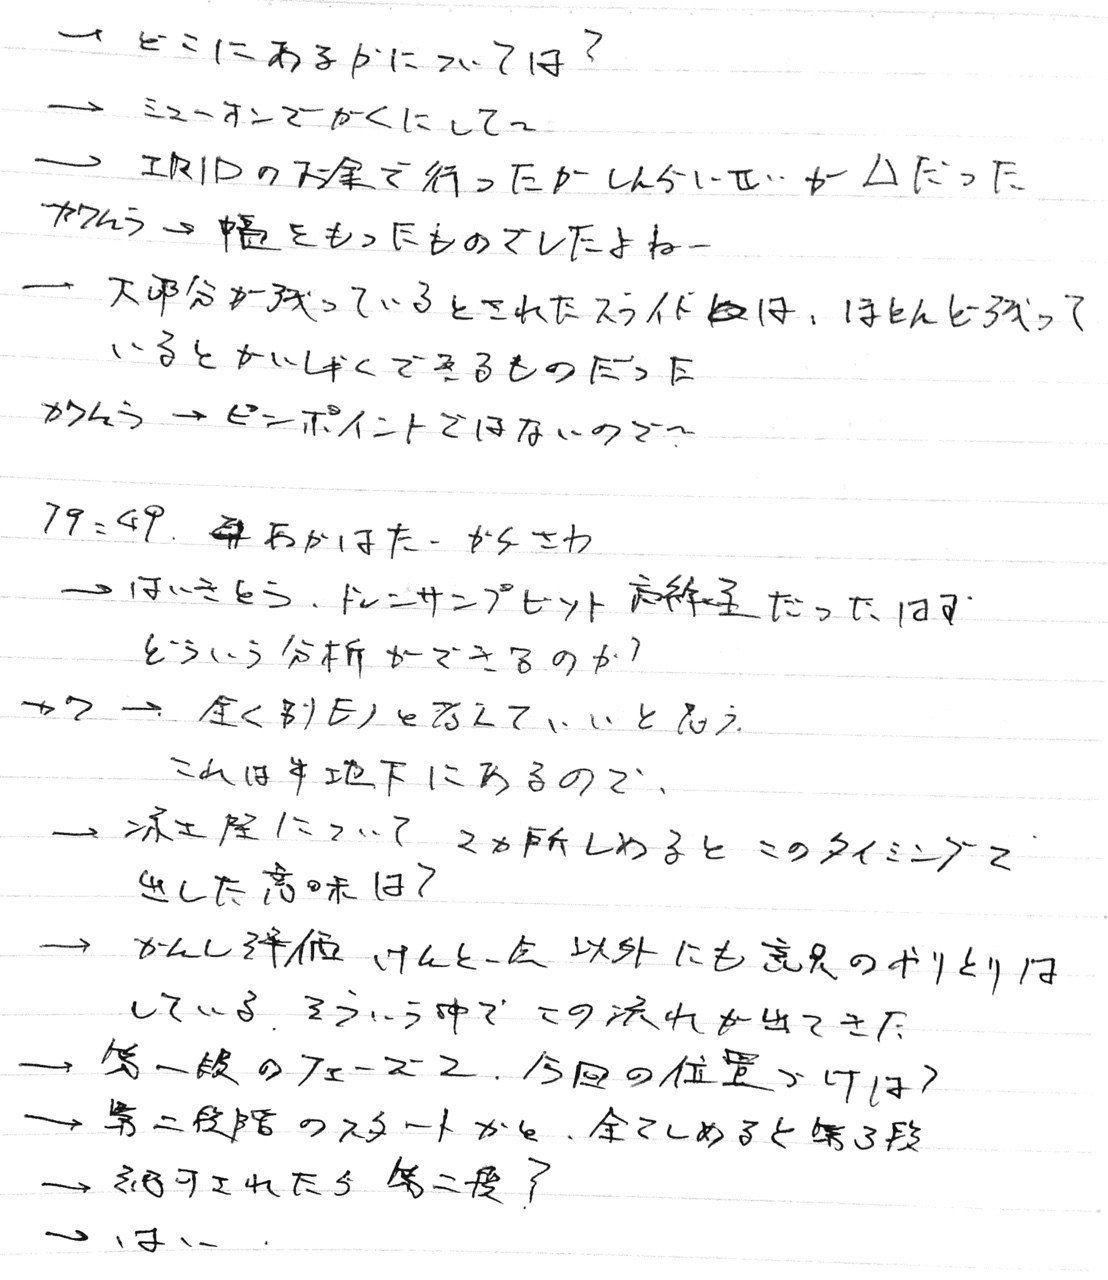 → どこにあるかについては？
→ ミューオンでかくにして〜
→ IRIDのお金で行ったがしんらいせいが△だった
→ 幅をもったものでしたよねー
→ 大部分が残っているとされたスライドは、ほとんど残って
いるとかいしゃくできるものだった
→ ピンポイントではないので〜
79:49. あかはたー からさわ
→ はいきとう、ドレンサンプピット 高線量だったはず
どういう分析ができるのか？
→ 全く別モノと考えていいと思う。
これは半地下にあるので、
→ 凍土壁について 2カ所しめるとこのタイミングで
出した意味は？
→ かんし評価 けんとー会 以外にも意見のやりとりは
している。そういう中でこの流れが出てきた
→ 第一段のフェーズ2、今回の位置づけは？
→ 第二段階のスタートかと、全てしめると第3段
→ 認可されたら第二段？
→ はい